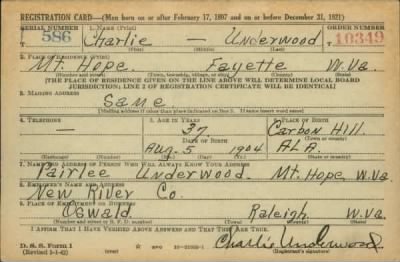 REGISTRATION CARD—(Men born on or after February 17, 1897 and on or before December 31, 1921)
SERIAL NUMBER 1. NAME (Print) ORDER NUMBER
U 586 Charlie — Underwood 10349
(First) (Middle) (Last)
2. PLACE OF RESIDENCE (Print)
Mt. Hope. Fayette W.Va.
(Number and street) (Town, township, village, or city) (County) (State)
[THE PLACE OF RESIDENCE GIVEN ON THE LINE ABOVE WILL DETERMINE LOCAL BOARD
JURISDICTION; LINE 2 OF REGISTRATION CERTIFICATE WILL BE IDENTICAL]
3. MAILING ADDRESS
Same
[Mailing address if other than place indicated on line 2. If same insert word same]
4. TELEPHONE 5. AGE IN YEARS 6. PLACE OF BIRTH
— 37 Carbon Hill.
DATE OF BIRTH (Town or county)
Aug. 5 1904 ALA.
(Exchange) (Number) (Mo.) (Day) (Yr.) (State or country)
7. NAME AND ADDRESS OF PERSON WHO WILL ALWAYS KNOW YOUR ADDRESS
Pairlee Underwood Mt. Hope, W.Va.
8. EMPLOYER'S NAME AND ADDRESS
New River Co.
9. PLACE OF EMPLOYMENT OR BUSINESS
Oswald Raleigh W.Va
(Number and street or R. F. D. number) (Town) (County) (State)
I AFFIRM THAT I HAVE VERIFIED ABOVE ANSWERS AND THAT THEY ARE TRUE.
D. S. S. Form 1
(Revised 4-1-42)
Charlie Underwood
(Registrant's signature)